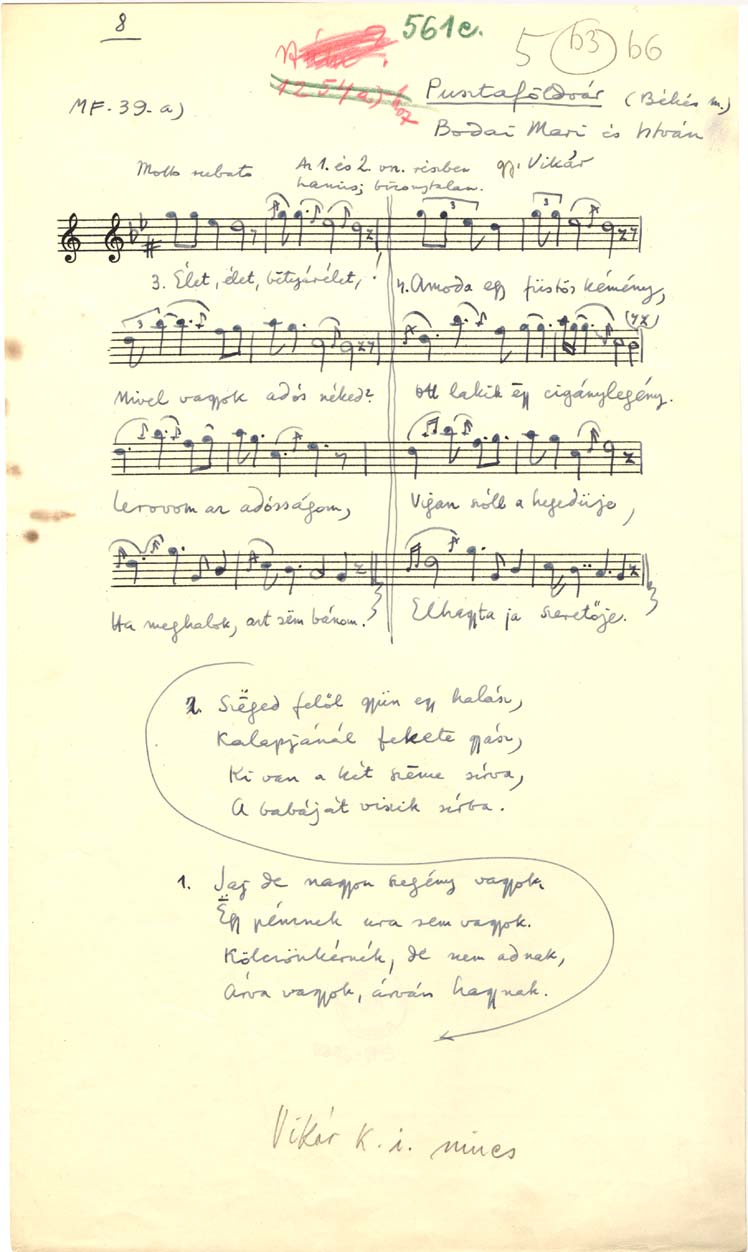 8
561c.
5 b3 b6
1254a)
MF. 39. a)
Pusztaföldvár (Békés m.)
Bodai Mari és István
Molto rubato
Az 1. és 2. vsz. részben
hamis; bizonytalan.
gy. Vikár
3. Élet, élet, bëtyárélet,!
4. Amoda egy füstös kémény,
Mivel vagyok adós néked?
Ott lakik ëgy cigánylegény.
Lerovom az adósságom,
Vígan szóll a hegedüje,
Ha meghalok, azt sëm bánom.
Elhagyta ja szeretője.
2. Szëged felől gyün egy halász,
Kalapjánál fekete gyász,
Ki van a két szëme sírva,
A babáját viszik sírba.
1. Jaj de nagyon szegény vagyok,
Ëgy pénznek ura sem vagyok.
Kölcsönkérnék, de nem adnak,
Árva vagyok, árván hagynak.
Vikár K. i. nincs